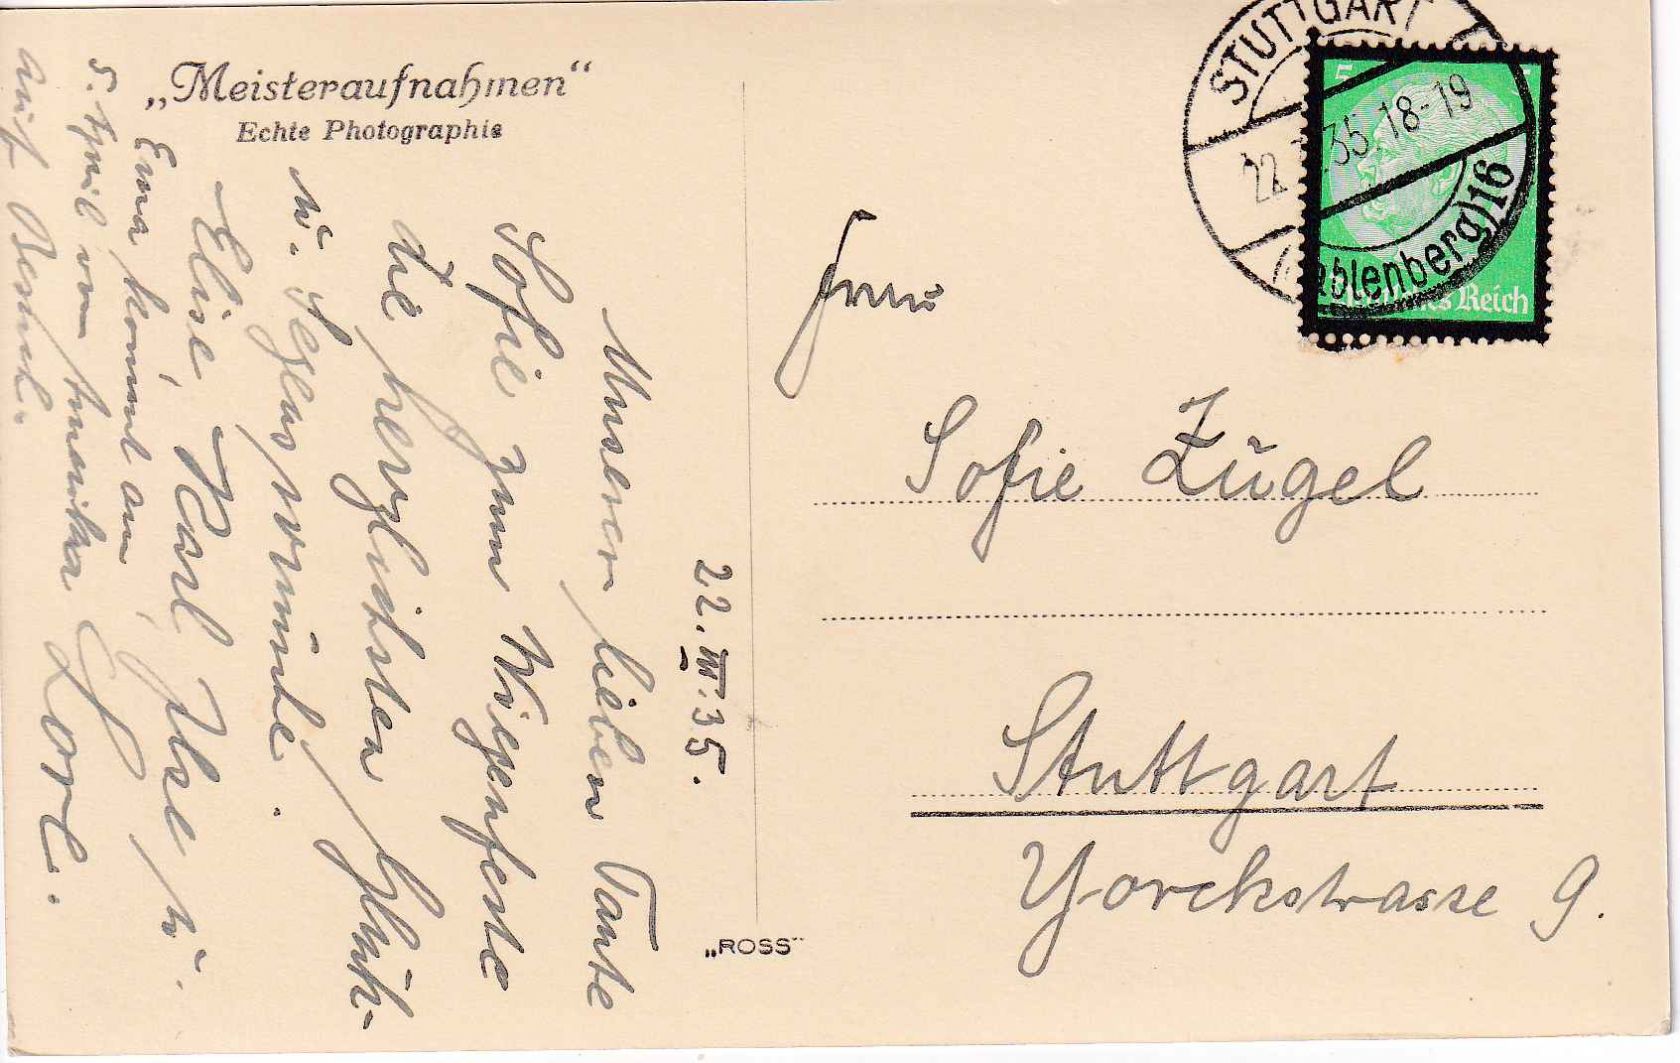 „Meisteraufnahmen“
Echte Photographie
22. III. 35.
Unserer lieben Tante
Sofie zum Wiegenfeste
die herzlichsten Glück-
u. Segenswünsche.
Elise, Karl, Ilse u.
Lorl.
Erna kommt am
5. April von Amerika
auf Besuch.
„ROSS“
STUTTGART
22. 35. 18-19
ablenberg) 16
5
Deutsches Reich
Frau
Sofie Zügel
Stuttgart
Yorckstrasse 9.